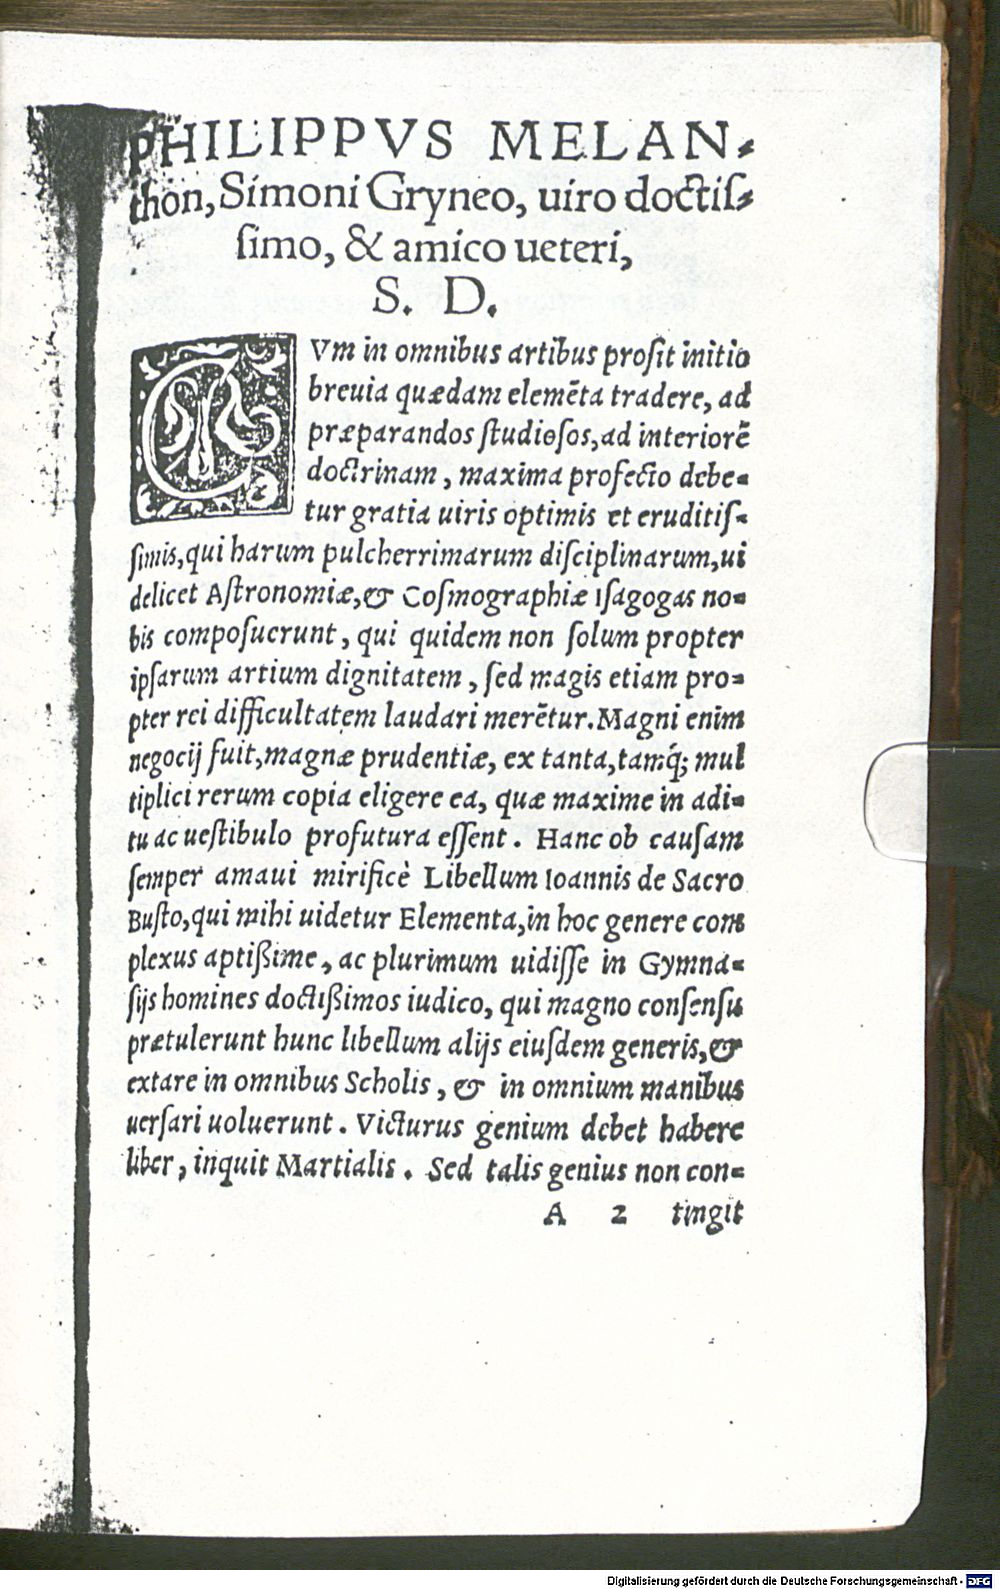 PHILIPPVS MELAN-
thon, Simoni Gryneo, uiro doctiſ-
ſimo, & amico ueteri,
S. D.
CVm in omnibus artibus proſit initio
breuia quædam elemẽta tradere, ad
præparandos ſtudioſos, ad interiorẽ
doctrinam, maxima profecto debe-
tur gratia uiris optimis et eruditiſ-
ſimis, qui harum pulcherrimarum diſciplinarum, ui
delicet Aſtronomiæ, & Coſmographiæ Iſagogas no-
bis compoſuerunt, qui quidem non ſolum propter
ipſarum artium dignitatem, ſed magis etiam pro-
pter rei difficultatem laudari merẽtur. Magni enim
negocij fuit, magnæ prudentiæ, ex tanta, tamq́; mul
tiplici rerum copia eligere ea, quæ maxime in adi-
tu ac ueſtibulo profutura eſſent. Hanc ob cauſam
ſemper amaui mirificè Libellum Ioannis de Sacro
Buſto, qui mihi uidetur Elementa, in hoc genere com
plexus aptißime, ac plurimum uidiſſe in Gymna-
ſijs homines doctißimos iudico, qui magno conſenſu
prætulerunt hunc libellum alijs eiuſdem generis, &
extare in omnibus Scholis, & in omnium manibus
uerſari uoluerunt. Victurus genium debet habere
liber, inquit Martialis. Sed talis genius non con-
A 2 tingit
Digitalisierung gefördert durch die Deutsche Forschungsgemeinschaft - DFG